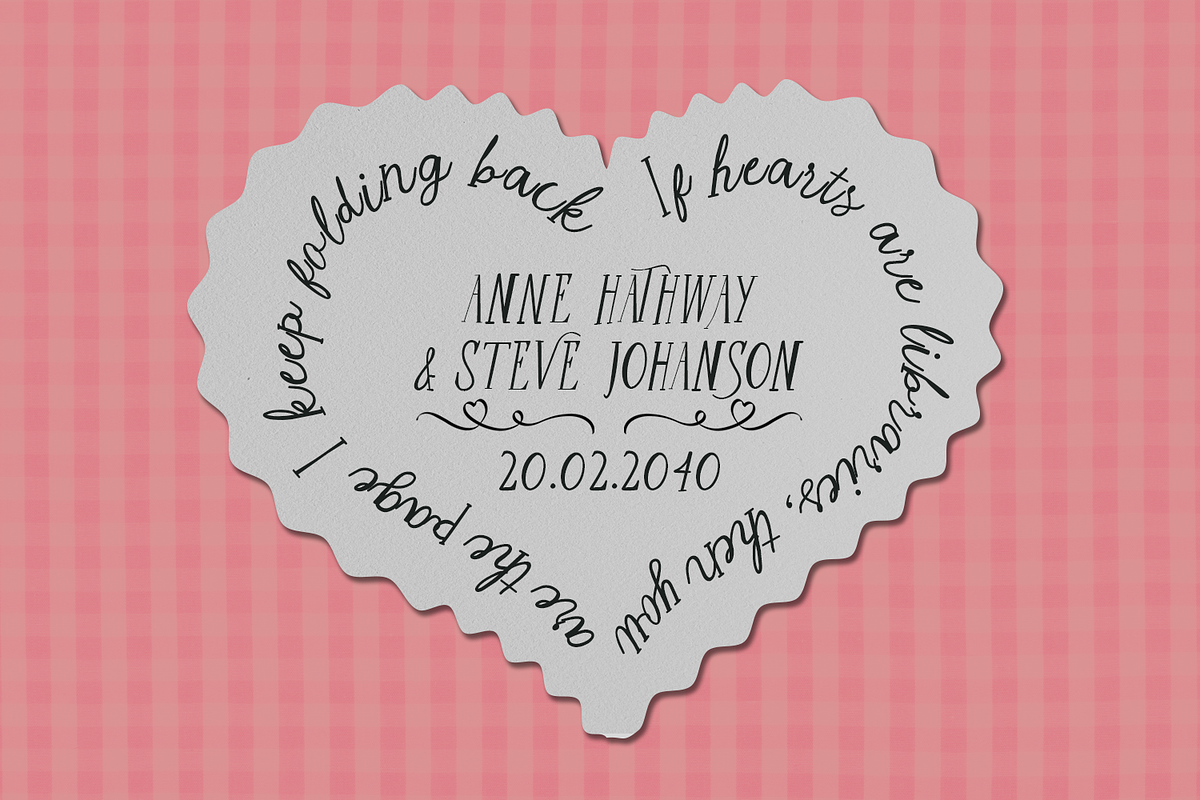 If hearts are libraries, then you are the page I keep folding back
ANNE HATHWAY
& STEVE JOHANSON
20.02.2040